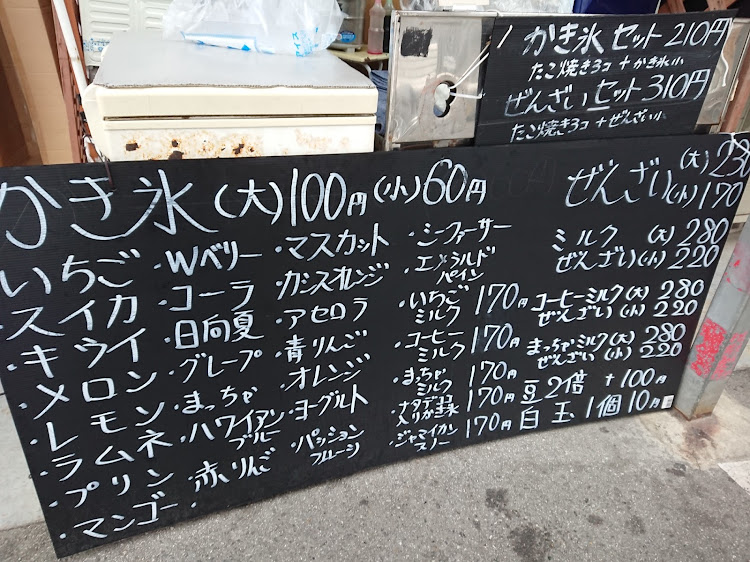 かき氷セット 210円
たこ焼き3コ + かき氷小
ぜんざいセット 310円
たこ焼き3コ + ぜんざい小
かき氷 (大) 100円 (小) 60円
いちご
スイカ
キウイ
・メロン
・レモン
・ラムネ
・プリン
・マンゴー
・Wベリー
・コーラ
・日向夏
・グレープ
・まっちゃ
・ハワイアンブルー
・赤りんご
・マスカット
・カシスオレンジ
・アセロラ
・青りんご
・オレンジ
・ヨーグルト
・パッションフルーツ
・シークァーサー
・エメラルドパイン
・いちごミルク 170円
・コーヒーミルク 170円
・まっちゃミルク 170円
・ナタデココ入りかき氷 170円
・ジャマイカンスリー 170円
ぜんざい (大) 230
(小) 170
ミルクぜんざい (大) 280
(小) 220
コーヒーミルクぜんざい (大) 280
(小) 220
まっちゃミルクぜんざい (大) 280
(小) 220
豆2倍 +100円
白玉1個10円